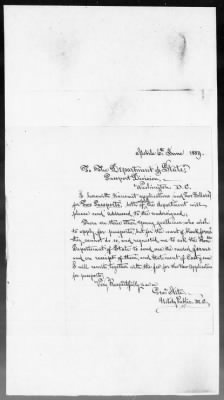 Mobile 6th June 1889.
To The Department of State,
Passport Division,
Washington D.C.
I herewith transmit applications and Two Dollars
for Two Passports, both of the department will
please send addressed to the undersigned.
There are three other young gentlemen who wish
to apply for passports, but for the want of blank forms
they cannot do so, and requested me to ask the Hon.
Department of State to send me the needed forms
and on receipt of them, and statement of Cost, 
I will remit together with the fee for the Two Applications
for passports.
Very Respectfully
Notary Public M.C.